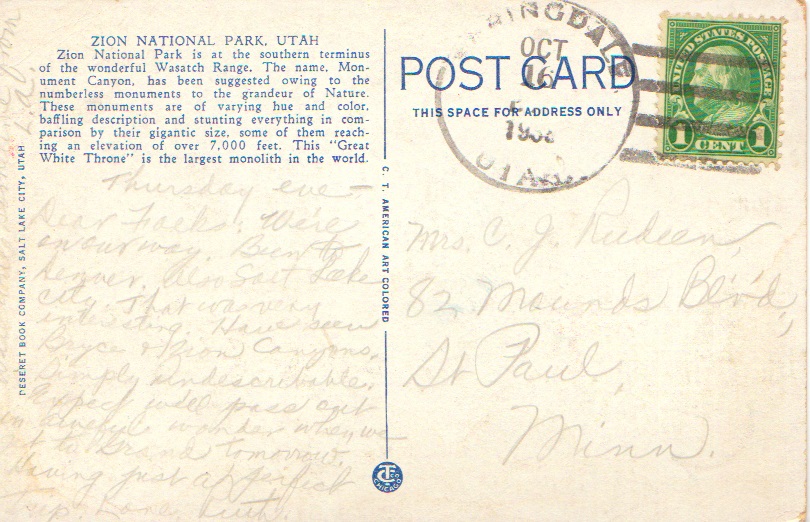 ZION NATIONAL PARK, UTAH
Zion National Park is at the southern terminus
of the wonderful Wasatch Range. The name, Mon-
ument Canyon, has been suggested owing to the
numberless monuments to the grandeur of Nature.
These monuments are of varying hue and color,
baffling description and stunting everything in com-
parison by their gigantic size, some of them reach-
ing an elevation of over 7,000 feet. This "Great
White Throne" is the largest monolith in the world.
DESERET BOOK COMPANY, SALT LAKE CITY, UTAH
Thursday eve —
Dear Folks: We're
on our way. Been to
Denver. Also Salt Lake
City. That was very
interesting. Have seen
Bryce & Zion Canyons.
Simply undescribable.
Expect will pass out
in awful wonder when we
get to Grand tomorrow.
Having just a perfect
trip. Love, Ruth.
C. T. AMERICAN ART COLORED
CTC
CHICAGO
POST CARD
THIS SPACE FOR ADDRESS ONLY
OCT
16
UTAH
UNITED STATES POSTAGE
1 CENT 1
Mrs. C. J. Rudeen,
82 Mounds Blvd,
St Paul,
Minn.